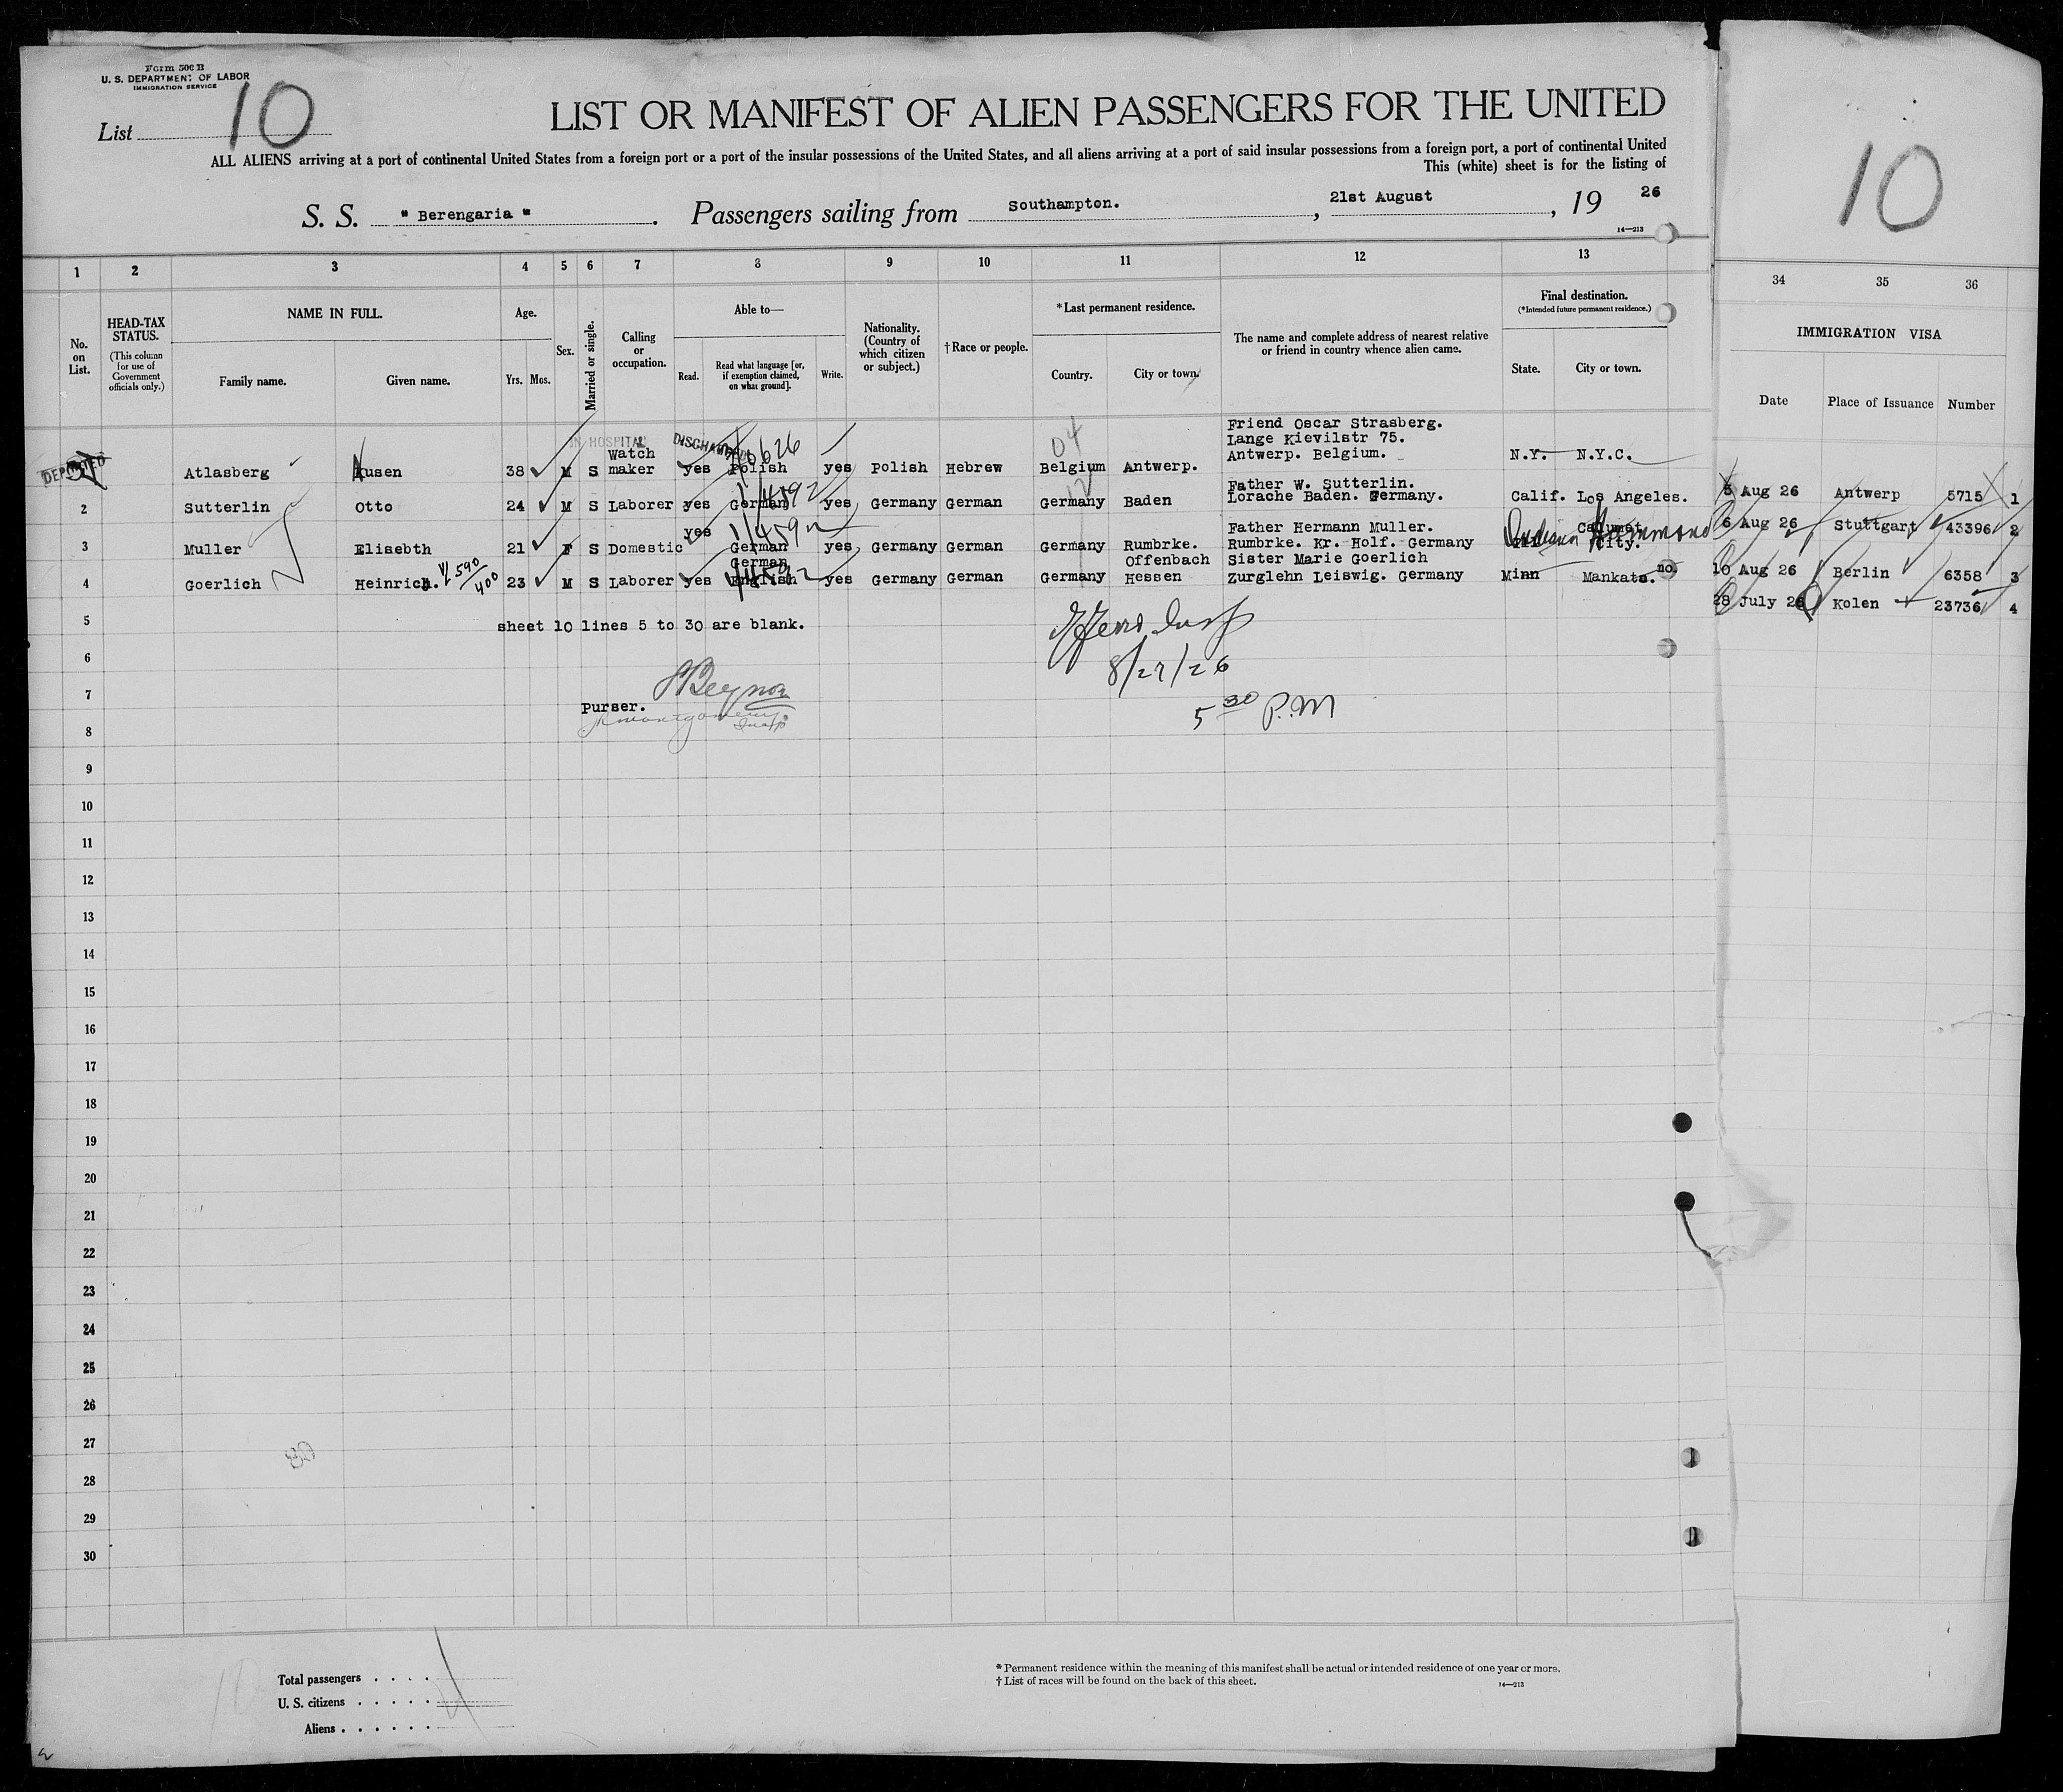 Form 500 B
U. S. DEPARTMENT OF LABOR
IMMIGRATION SERVICE
List 10
LIST OR MANIFEST OF ALIEN PASSENGERS FOR THE UNITED
ALL ALIENS arriving at a port of continental United States from a foreign port or a port of the insular possessions of the United States, and all aliens arriving at a port of said insular possessions from a foreign port, a port of continental United
This (white) sheet is for the listing of
S. S. " Berengaria " . Passengers sailing from Southampton. , 21st August , 19 26
14—213
10
1 2 3 4 5 6 7 8 9 10 11 12 13
34 35 36
No. on List.
HEAD-TAX STATUS.
(This column for use of Government officials only.)
NAME IN FULL.
Family name. Given name.
Age.
Yrs. Mos.
Sex.
Married or single.
Calling or occupation.
Able to—
Read. Read what language [or, if exemption claimed, on what ground]. Write.
Nationality. (Country of which citizen or subject.)
† Race or people.
* Last permanent residence.
Country. City or town.
The name and complete address of nearest relative or friend in country whence alien came.
Final destination.
(*Intended future permanent residence.)
State. City or town.
IMMIGRATION VISA
Date Place of Issuance Number
IN HOSPITAL DISCHARGED
DEPORTED
Atlasberg Kusen 38 M S Watch maker yes Polish yes Polish Hebrew Belgium Antwerp. Friend Oscar Strasberg. Lange Kievilstr 75. Antwerp. Belgium. N.Y. N.Y.C.
04
2 Sutterlin Otto 24 M S Laborer yes German yes Germany German Germany Baden Father W. Sutterlin. Lorache Baden. Germany. Calif. Los Angeles.
1/4592
3 Muller Elisebth 21 F S Domestic yes German yes Germany German Germany Rumbrke. Father Hermann Muller. Rumbrke. Kr. Holf. Germany Indiana Hammond Calumat City.
1/4592
4 Goerlich Heinrich. V/590/400 23 M S Laborer yes German English yes Germany German Germany Offenbach Hessen Sister Marie Goerlich Zurglehn Leiswig. Germany Minn Mankato. no.
1/4592
5 Aug 26 Antwerp 5715 1
6 Aug 26 Stuttgart 43396 2
10 Aug 26 Berlin 6358 3
28 July 26 Kolen 23736 4
5 sheet 10 lines 5 to 30 are blank.
6
8/27/26
7
Purser.
5 30 P.M
8
9
10
11
12
13
14
15
16
17
18
19
20
21
22
23
24
25
26
27
28
29
30
Total passengers . . . .
U. S. citizens . . . . .
Aliens . . . . . .
* Permanent residence within the meaning of this manifest shall be actual or intended residence of one year or more.
† List of races will be found on the back of this sheet.
14—213